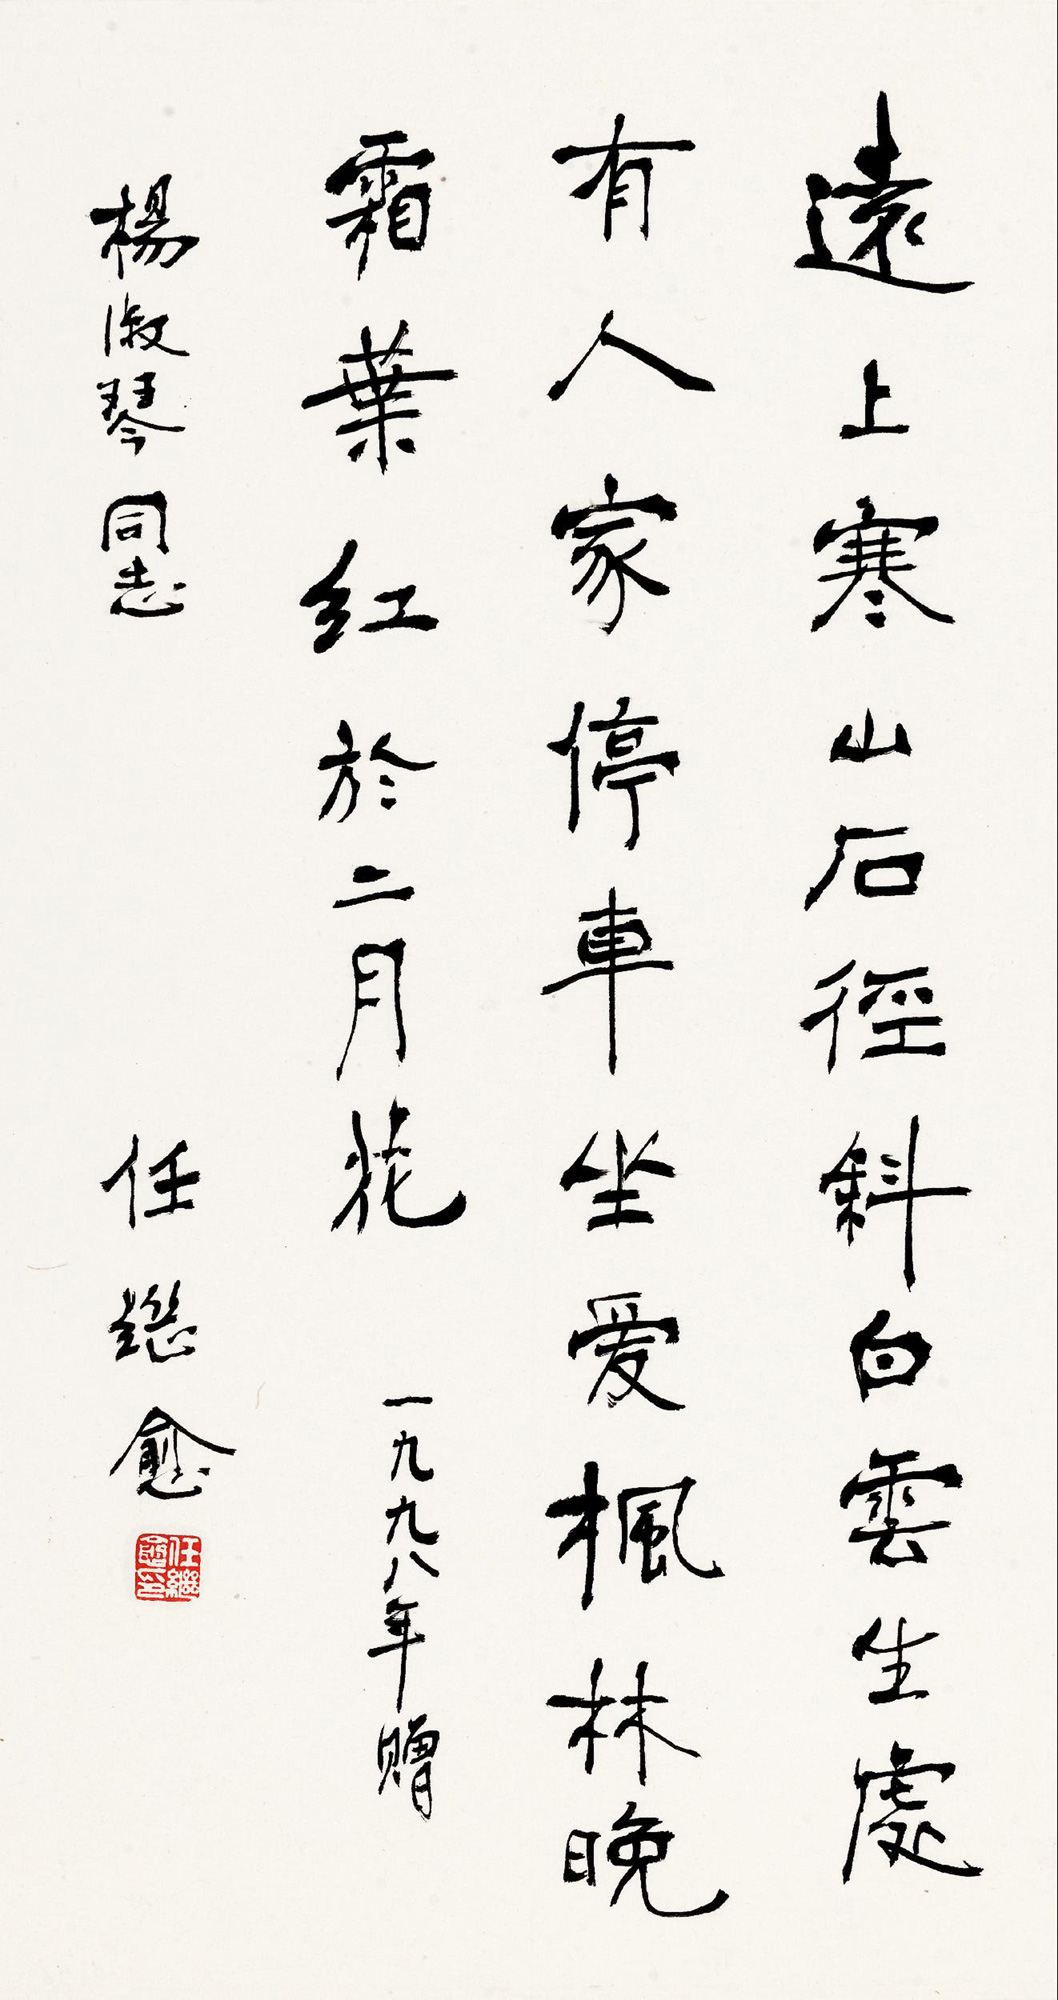 遠上寒山石徑斜白雲生處
有人家停車坐爱楓林晚
霜葉红於二月花
一九九八年赠
楊淑琴同志
任繼愈
任繼愈印